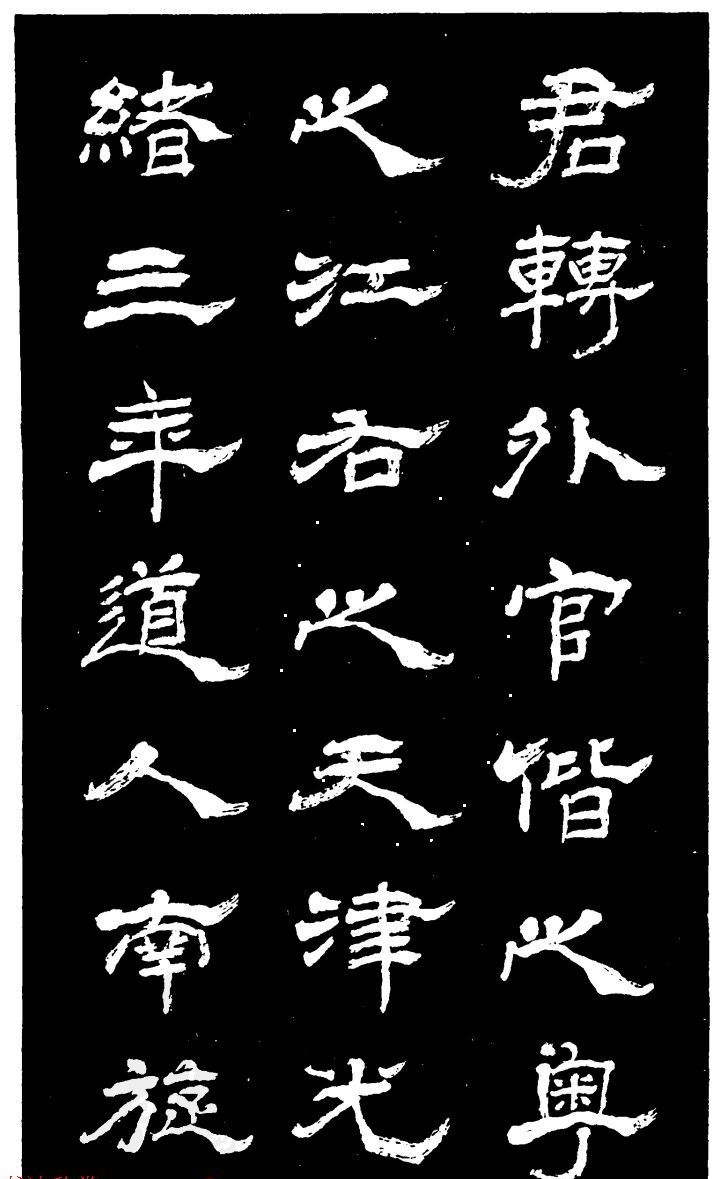 君轉外官偕之粵
之江右之天津光
緒三年道人南旋